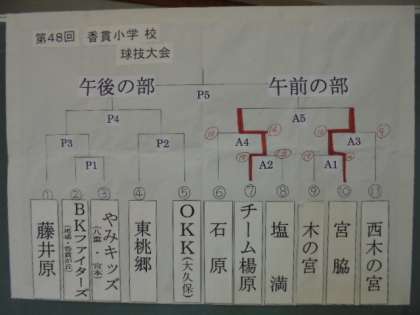 第48回 香貫小学 校
球技大会
午後の部
午前の部
P5
P4
A5
P3
P2
A4
A3
P1
A2
A1
①
②
③
④
⑤
⑥
⑦
⑧
⑨
⑩
⑪
藤井原
BKファイターズ
やみキッズ
(八重・宮本)
東桃郷
OKK(大久保)
石原
チーム楊原
塩満
木の宮
宮脇
西木の宮